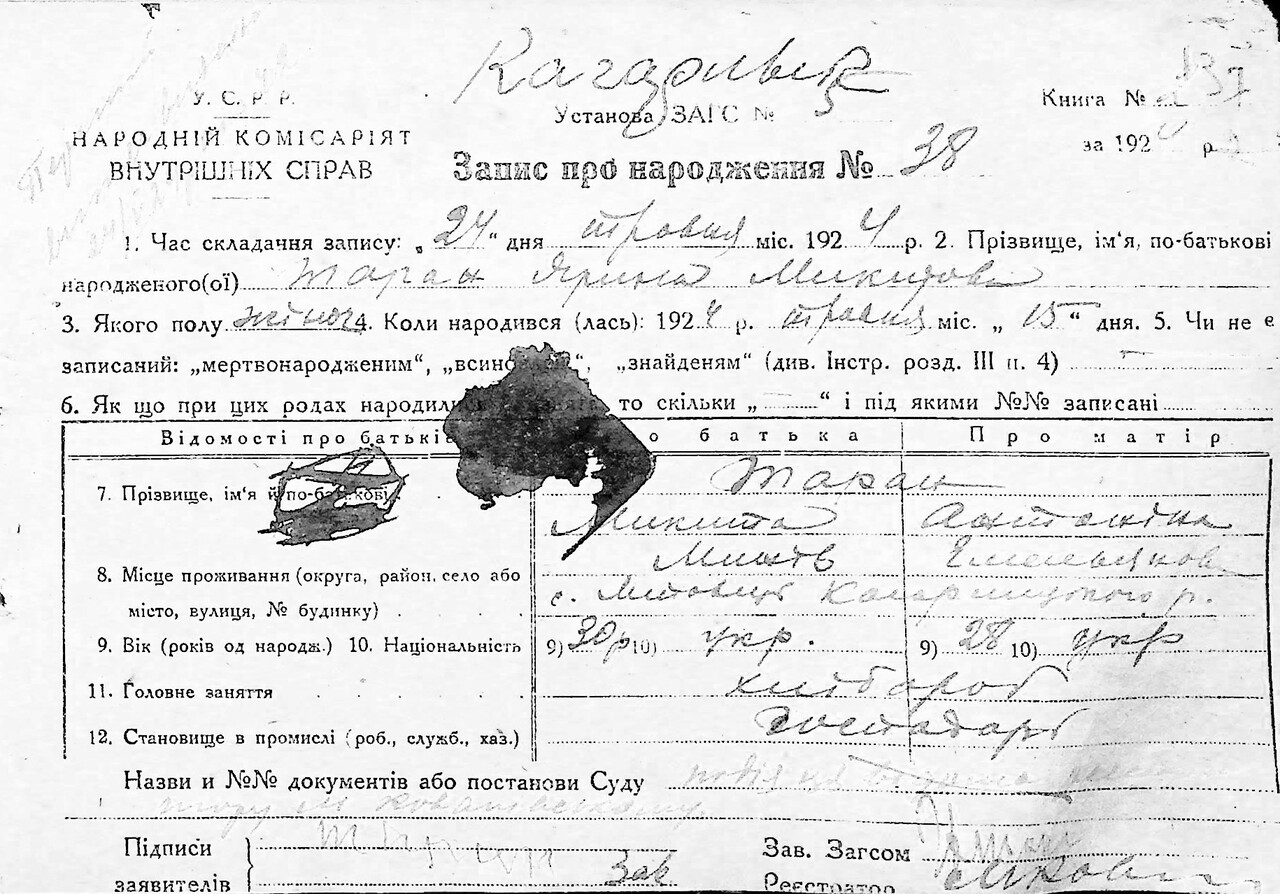 Кагарлик
У. С. Р. Р.
НАРОДНІЙ КОМІСАРІЯТ
ВНУТРІШНІХ СПРАВ
Установа ЗАГС №
Книга № 137
за 1924 р.
Запис про народження № 38
1. Час складачня запису: „24" дня травня міс. 1924 р. 2. Прізвище, ім'я, по-батькові
народженого(ої) Таран Ярина Микитова
3. Якого полу жіноч 4. Коли народився (лась): 1924 р. травня міс. „15" дня. 5. Чи не є
записаний: „мертвонародженим", „всиновлен", „знайденям" (див. Інстр. розд. III п. 4)
6. Як що при цих родах народились то скільки „ " і під якими №№ записані
Відомості про батьків
о батька
Про матір
7. Прізвище, ім'я й по-батькові
Таран
Микита
Антоніна
Емельянова
8. Місце проживання (округа, район, село або
місто, вулиця, № будинку)
с. Кагарлицького р.
9. Вік (років од народж.) 10. Національність
9) 30 р 10) укр.
9) 28 10) укр
11. Головне заняття
хлібороб
12. Становище в промислі (роб., служб., хаз.)
господарі
Назви и №№ документів або постанови Суду
Підписи
заявителів
Зав. Загсом
Реєстратор